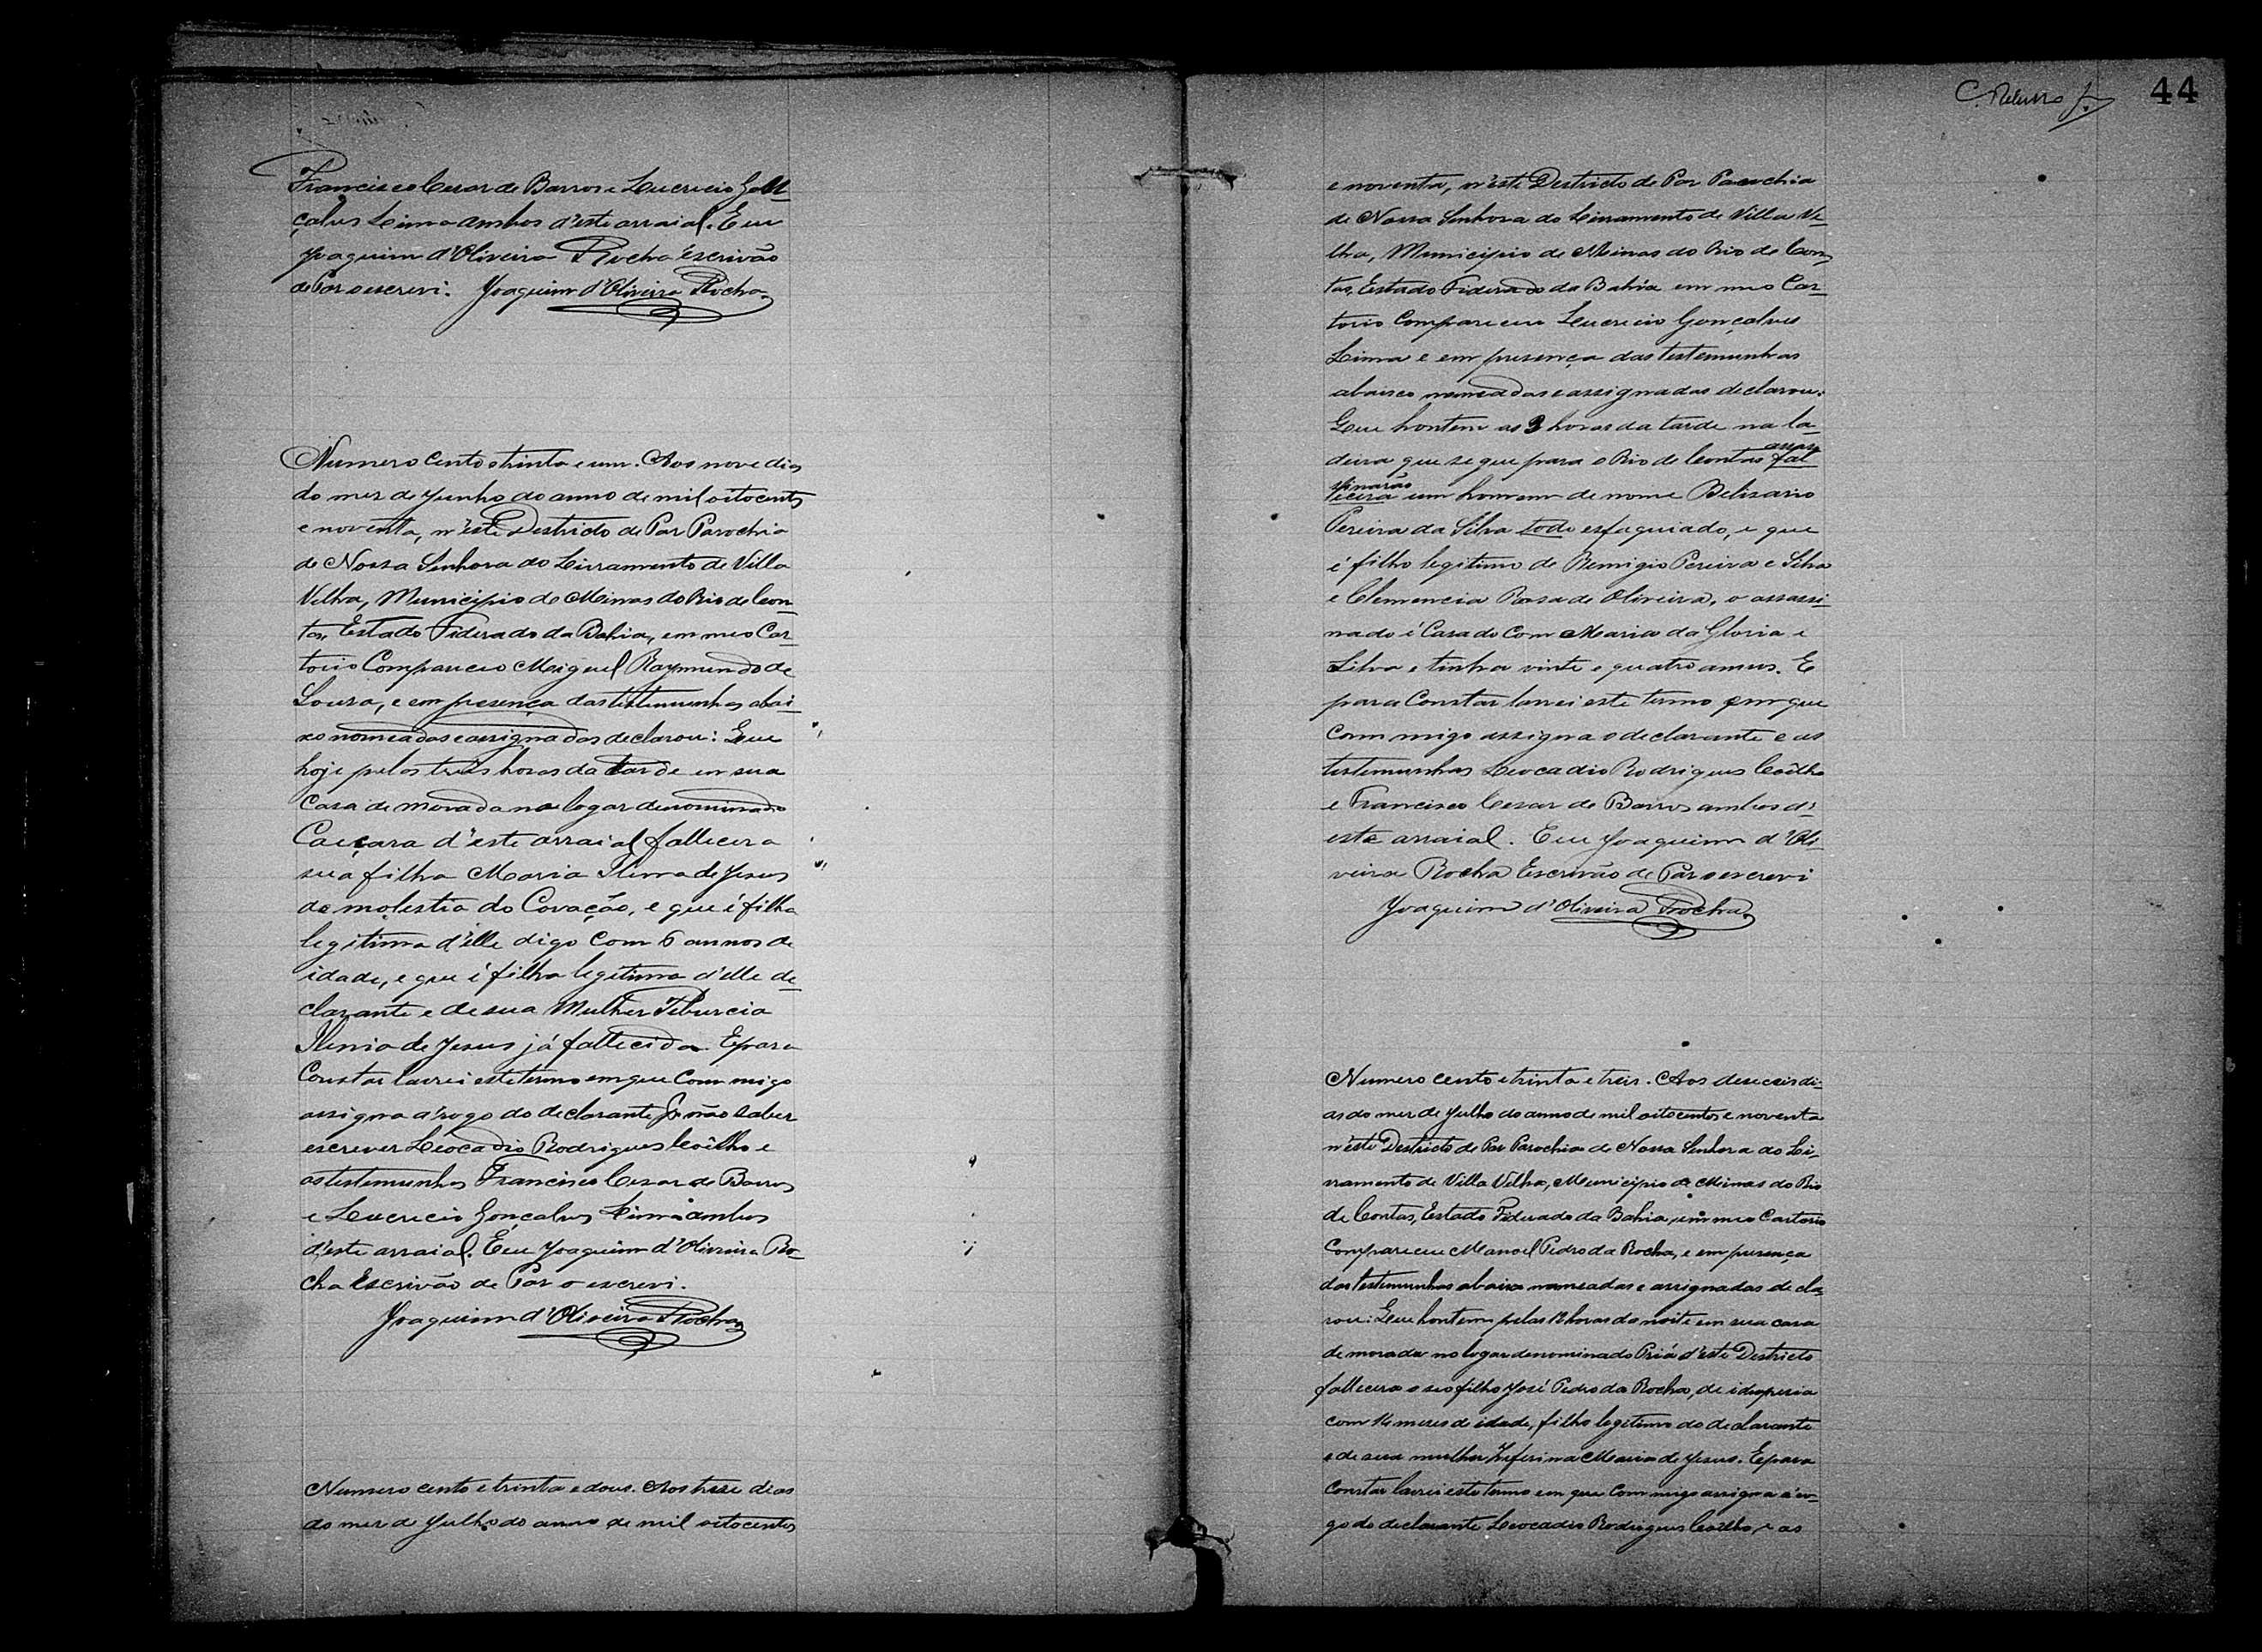 Francisco Cesar de Barros e Lucrecio Gon-
çalves Lima ambos d'este arraial. E eu
Joaquim d'Oliveira Rocha Escrivão
de Paz o escrevi. Joaquim d'Oliveira Rocha
Numero cento e trinta e um. Aos nove dias
do mez de Junho do anno de mil oitocentos
e noventa, n'este Destricto de Paz Parochia
de Nossa Senhora do Livramento de Villa
Velha, Municipio de Minas do Rio de Con-
tas, Estado Federado da Bahia, em meo Car-
torio Compareceo Miguel Raymundo de
Sousa, e em presença das testemunhas abai-
xo nomeadas e assignadas declarou: Que
hoje pelas treis horas da tarde em sua
Casa de morada no logar denominado
Caiçara d'este arraial fallecera
sua filha Maria Ilena de Jesus
de molestia do Coração, e que é filha
legitima d'elle digo com 6 annos de
idade, e que é filha legitima d'elle de-
clarante e de sua Mulher Tiburcia
Ilenia de Jesus já fallecida. E para
Constar lavrei este termo em que Commigo
assigna a'rogo do declarante por não saber
escrever Leocadio Rodrigues Coêlho e
as testemunhas Francisco Cesar de Barros
e Lucrecio Gonçalves Lima ambos
d'este arraial. E eu Joaquim d'Oliveira Ro-
cha Escrivão de Paz o escrevi.
Joaquim d'Oliveira Rocha
Numero cento e trinta e dous. Aos treze dias
do mez de Julho do anno de mil oitocentos
44
e noventa, n'este Destricto de Paz Parochia
de Nossa Senhora do Livramento de Villa Ve-
lha, Municipio de Minas do Rio de Con-
tas, Estado Federado da Bahia em meo Car-
torio Compareceu Lucrecio Gonçalves
Lima e em presença das testemunhas
abaixo nomeadas e assignadas declarou:
Que hontem as 3 horas da tarde na la-
deira que segue para o Rio de Contas assas
fal
sinarão
lecera um homem de nome Belizario
Pereira da Silva todo esfaquiado, e que
é filho legitimo de Remigio Pereira e Silva
e Clemencia Rosa de Oliveira, o assassi-
nado é Casado Com Maria da Gloria e
Silva e tinha vinte e quatro annos. E
para Constar lavrei este termo em que
Commigo assigna o declarante e as
testemunhas Leocadio Rodrigues Coêlho
e Francisco Cesar de Barros ambos d'-
este arraial. E eu Joaquim d'Oli-
veira Rocha Escrivão de Paz o escrevi
Joaquim d'Oliveira Rocha
Numero cento e trinta e treis. Aos deseceis di-
as do mez de Julho do anno de mil oitocentos e noventa
n'este Destricto de Paz Parochia de Nossa Senhora do Li-
vramento de Villa Velha, Municipio de Minas do Rio
de Contas, Estado Federado da Bahia, em meo Cartorio
Compareceu Manoel Pedro da Rocha, e em presença
das testemunhas abaixo nomeadas e assignadas decla-
rou: Que hontem pelas 12 horas da noite em sua casa
de morada no logar denominado d'este Destricto
fallecera o seo filho José Pedro da Rocha, de idropesia
com 14 mezes de idade, filho legitimo do declarante
e de sua mulher Maria de Jesus. E para
Constar lavrei este termo em que Commigo assigna a'ro-
go do declarante Leocadio Rodrigues Coêlho, e as